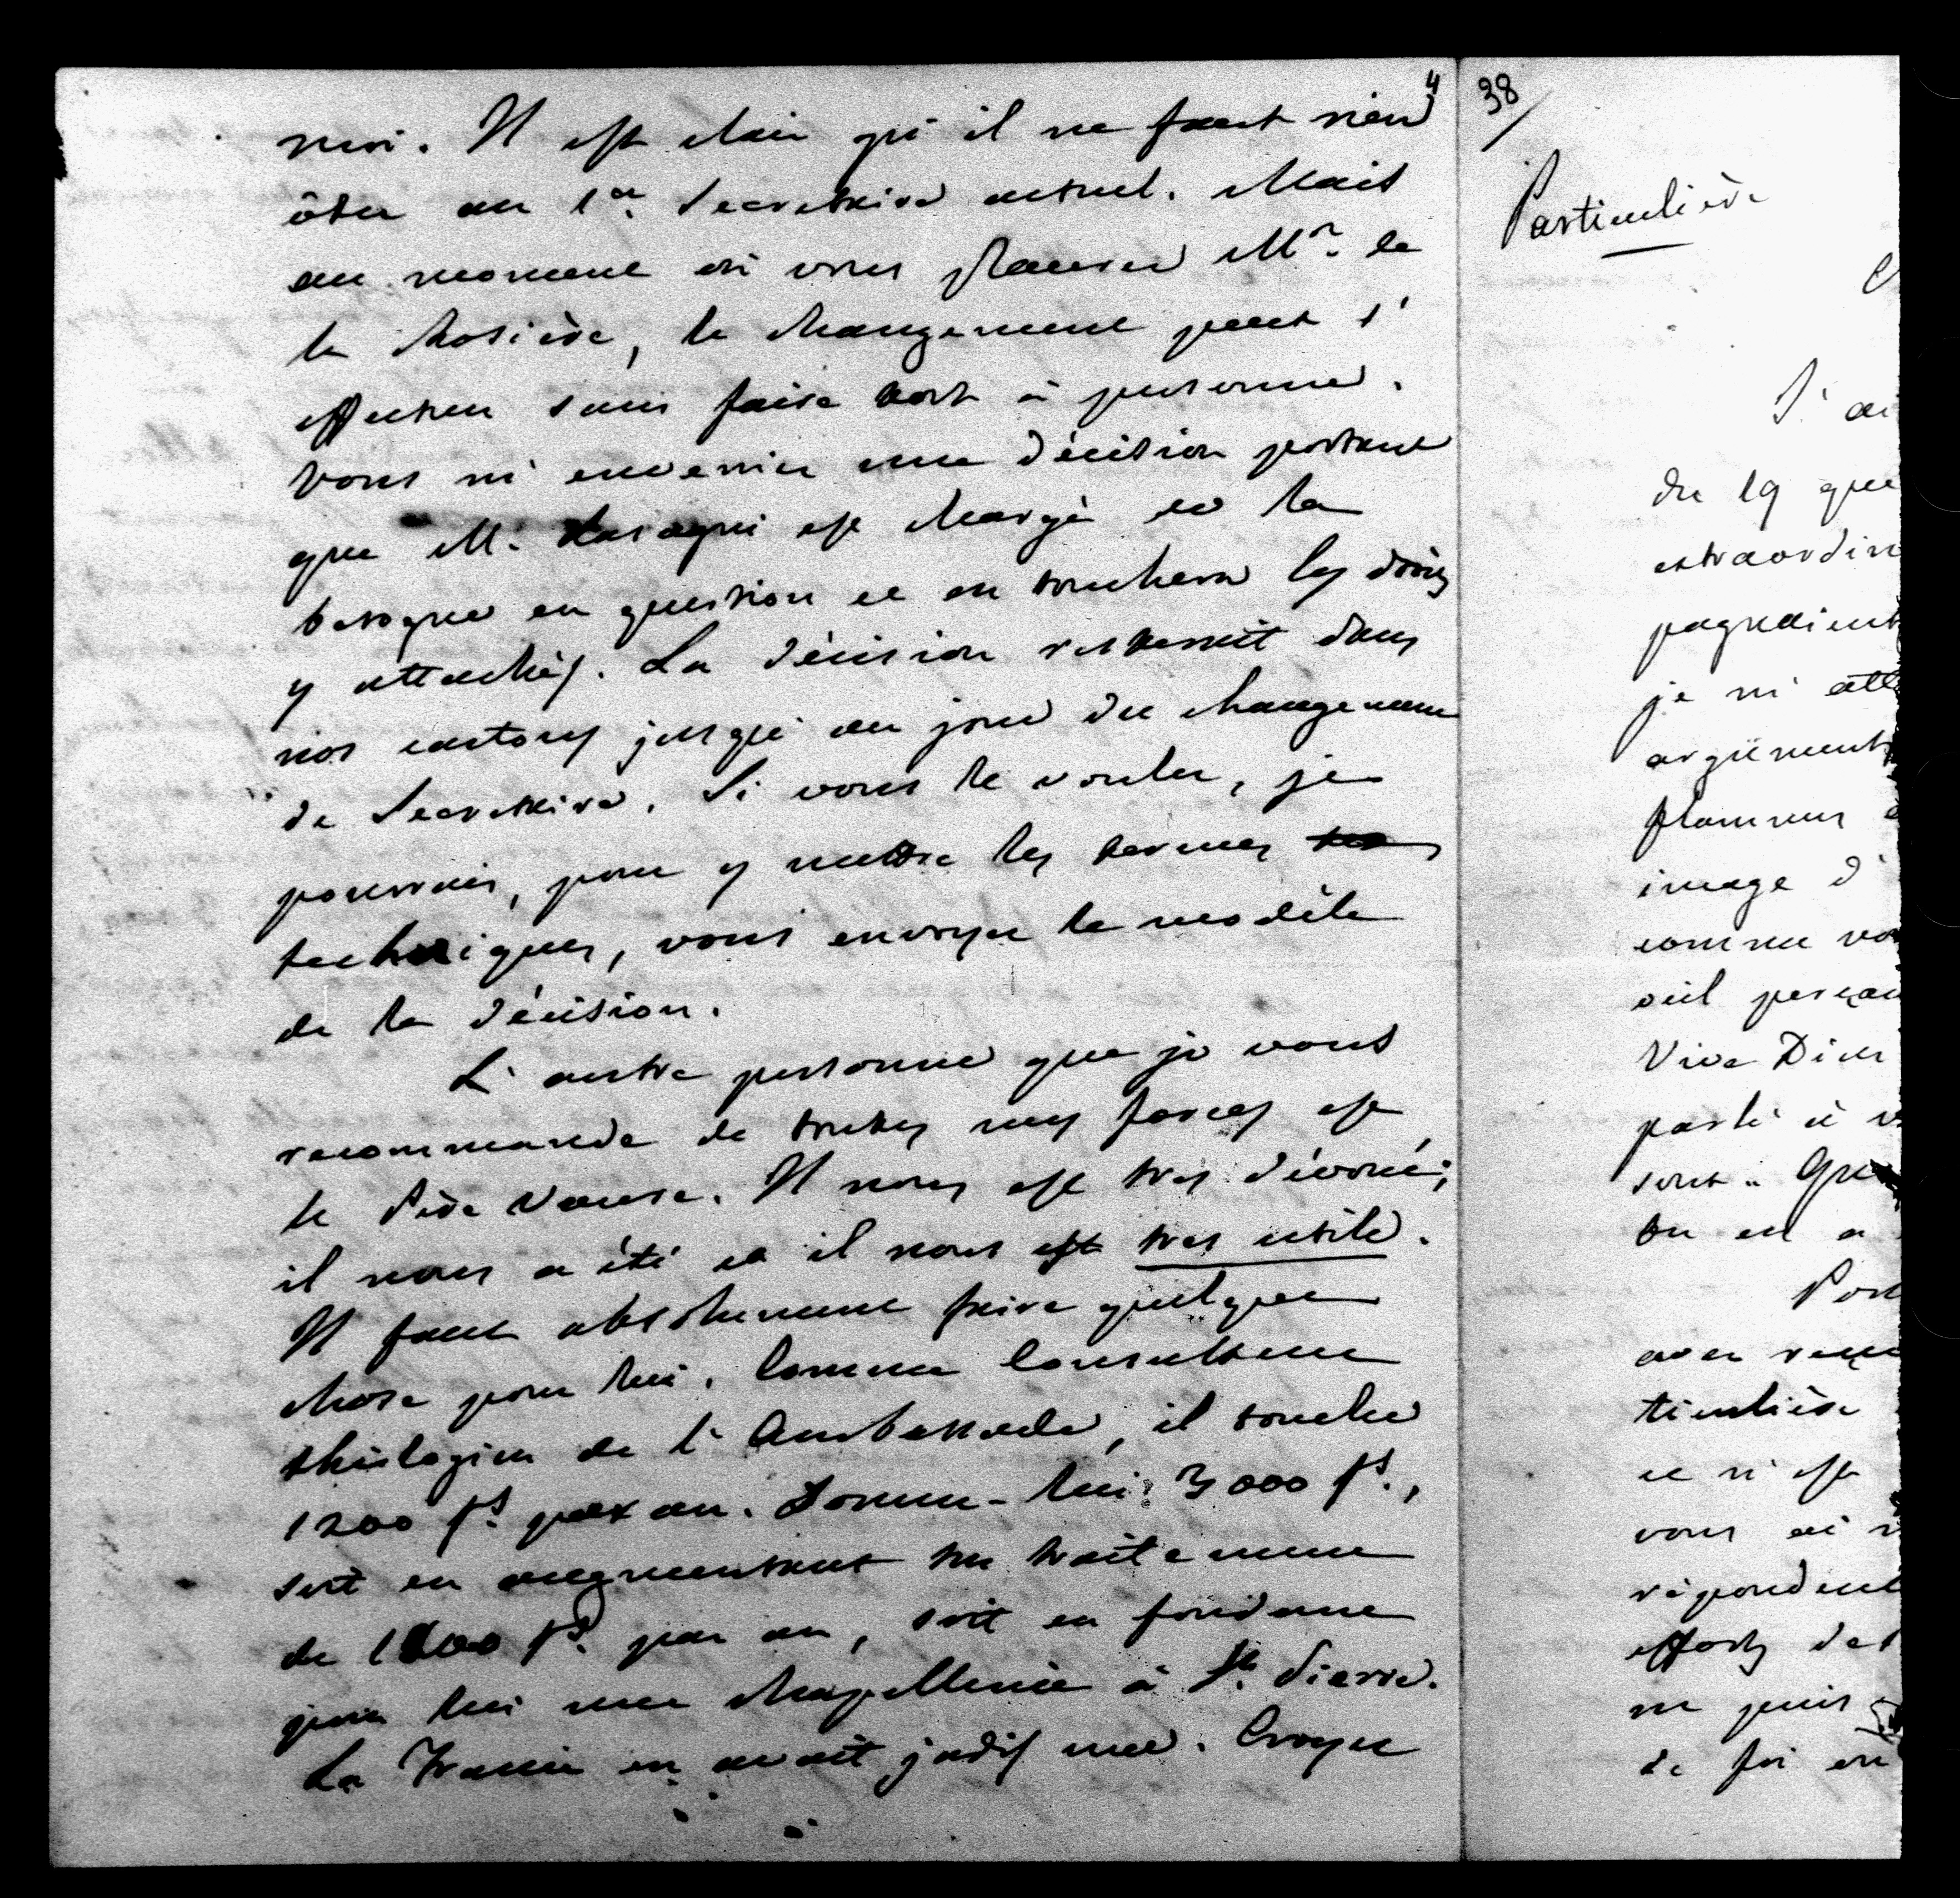 4
moi. Il est clair qu'il ne faut rien
ôter au 1er Secrétaire actuel. Mais
au moment où vous placerez Mr. de
la Rosière, le changement peut s'
effectuer sans faire tort à personne.
Vous m'enverriez une décision portant
que M. est chargé de la
besogne en question et en touchera les droits
y attachés. La décision resterait dans
nos cartons jusqu'au jour du changement
de Secrétaire. Si vous le voulez, je
pourrais, pour y mettre les termes
techniques, vous envoyer le modèle
de la décision.
L'autre personne que je vous
recommande de toutes mes forces est
le Père Vaure. Il nous est très dévoué;
il nous a été et il nous est très utile.
Il faut absolument faire quelque
chose pour lui. Comme Consulteur
théologien de l'Ambassade, il touche
1200 fs. par an. Donnez-lui 3000 fs.,
soit en augmentant son traitement
de 1800 fs. par an, soit en fondant
pour lui une chapellenie à St. Pierre.
La France en avait jadis une. Croyez
38/
Particulière
J'ai
du 19 que
extraordin
je m'att
argument
image d'
comme vo
œil perçan
Vive Dieu
parti à v
avez reçu
ticulière
ce n'est
vous ai
répondent
efforts des
ne puis
de foi en